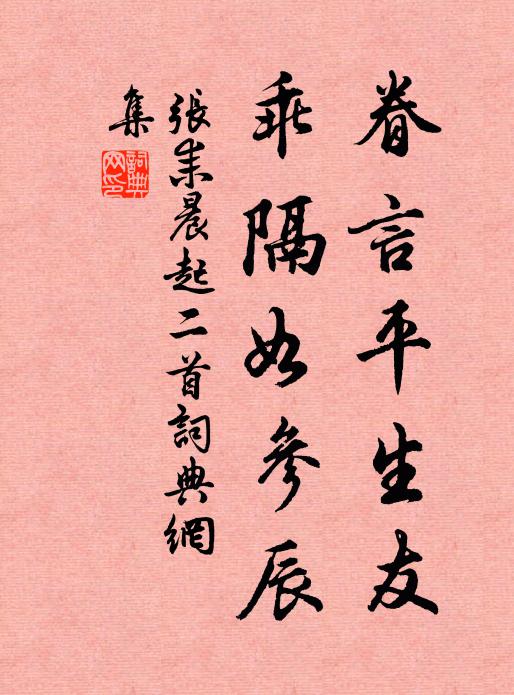 眷言平生友
乖隔如參辰
張耒晨起二首詞典網
集
詞典
网印